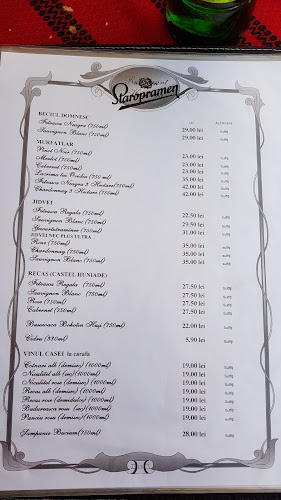 Staropramen
BECIUL DOMNESC
Feteasca Neagra (750ml) 29,00 lei
Sauvignon Blanc (750ml) 29,00 lei
MURFATLAR
Pinot Noir (750ml) 23,00 lei
Merlot (750ml) 23,00 lei
Cabernet (750ml) 23,00 lei
Lacrima lui Ovidiu (750 ml) 35,00 lei
Feteasca Neagra 3 Hectare(750ml) 42,00 lei
Chardonnay 3 Hectare(750ml) 42,00 lei
JIDVEI
Feteasca Regala (750ml) 22,50 lei
Sauvignon Blanc (750ml) 29,50 lei
Gewurtztraminer (750ml) 31,00 lei
JIDVEI NEC PLUS ULTRA
Rose (750ml) 35,00 lei
Chardonnay (750ml) 35,00 lei
Sauvignon Blanc (750ml) 35,00 lei
RECAS (CASTEL HUNIADE)
Feteasca Regala (750ml) 27,50 lei
Sauvignon Blanc (750ml) 27,50 lei
Rose (750ml) 27,50 lei
Cabernet (750ml) 27,50 lei
Busuioaca Bohotin Husi (750ml) 22,00 lei
Cidru (330ml) 5,90 lei
VINUL CASEI la carafa
Cotnari alb (demisec) (1000ml) 19,00 lei
Nicolitel alb (sec)(1000ml) 19,00 lei
Nicolitel rosu (demisec) (1000ml) 19,00 lei
Recas alb (demisec) (1000ml) 19,00 lei
Recas rose (demidulce) (1000ml) 19,00 lei
Budureasca rosu (sec)(1000ml) 19,00 lei
Panciu rosu (demisec) (1000ml) 19,00 lei
Sampanie Bucium(750ml) 28,00 lei